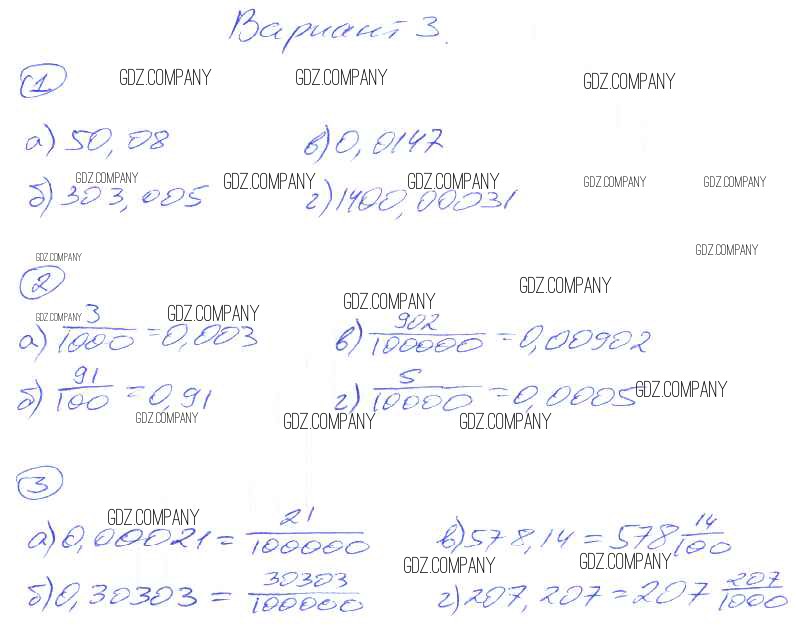 Вариант 3.
1 GDZ.COMPANY GDZ.COMPANY GDZ.COMPANY
а) 50,08 в) 0,0147
GDZ.COMPANY GDZ.COMPANY GDZ.COMPANY GDZ.COMPANY GDZ.COMPANY
б) 303,005 г) 1400,00031
GDZ.COMPANY GDZ.COMPANY
2 GDZ.COMPANY
GDZ.COMPANY GDZ.COMPANY GDZ.COMPANY
а) 3/1000 = 0,003 в) 902/100000 = 0,00902
б) 91/100 = 0,91 г) 5/10000 = 0,0005 GDZ.COMPANY
GDZ.COMPANY GDZ.COMPANY GDZ.COMPANY
3
GDZ.COMPANY
а) 0,00021 = 21/100000 в) 578,14 = 578 14/100
GDZ.COMPANY GDZ.COMPANY
б) 0,30303 = 30303/100000 г) 207,207 = 207 207/1000